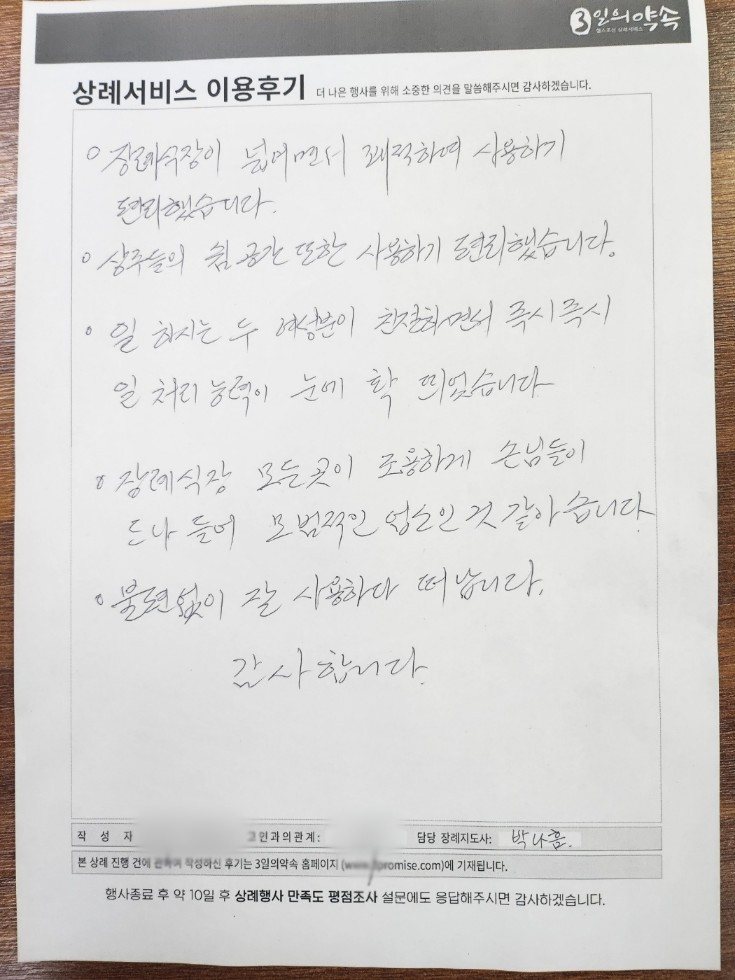 3일의약속
상례서비스 이용후기 더 나은 행사를 위해 소중한 의견을 말씀해주시면 감사하겠습니다.
○ 장례식장이 넓어면서 쾌적하여 사용하기
편리했습니다.
○ 상주들의 쉼 공간 또한 사용하기 편리했습니다.
○ 일 하시는 두 여성분이 친절하면서 즉시즉시
일 처리 능력이 눈에 확 띄었습니다
○ 장례식장 모든곳이 조용하게 손님들이
드나 들어 모범적인 업소인 것 같아습니다
○ 불편없이 잘 사용하다 떠납니다.
감사합니다.
작 성 자 인과의관계: 담당 장례지도사: 박나흠.
본 상례 진행 건에 관하여 작성하신 후기는 3일의약속 홈페이지 promise.com)에 기재됩니다.
행사종료 후 약 10일 후 상례행사 만족도 평점조사 설문에도 응답해주시면 감사하겠습니다.